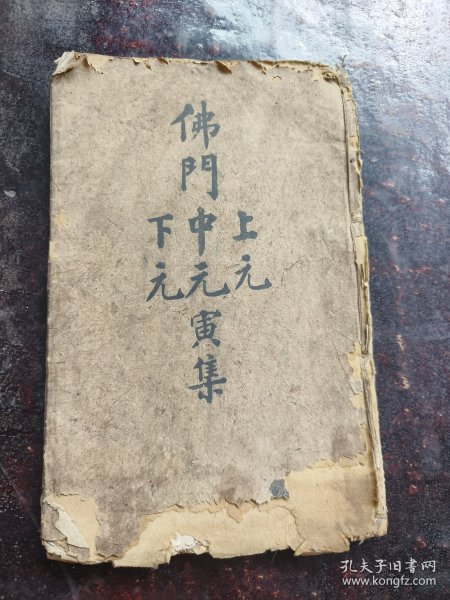 佛門
上元
中元
下元
寅集
孔夫子旧书网
www.kongfz.com